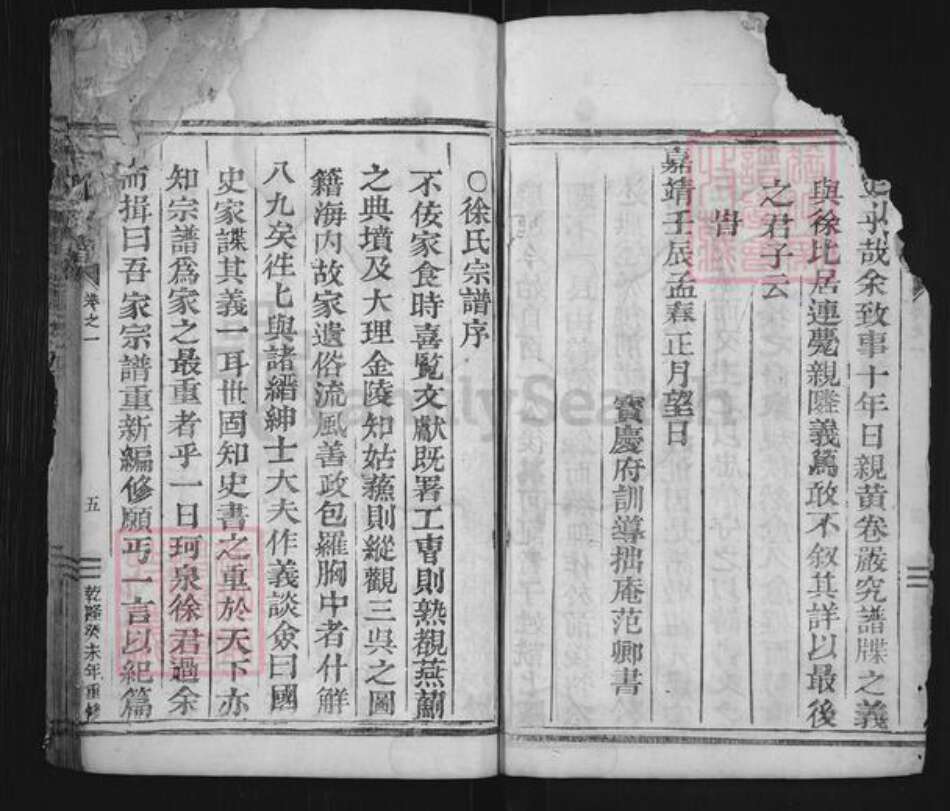 乎哉余致事十年日親黃卷嚴究譜牒之義
與徐比居連甍親隆義篤敢不叙其詳以最後
之君子云
旹
嘉靖壬辰孟春正月望日
寳慶府訓導拙庵范卿書
○徐氏宗譜序
不佞家食時喜覧文獻既署工曹則熟覩燕薊
之典墳及大理金陵知姑蘓則縱觀三吳之圖
籍海内故家遺俗流風善政包羅胸中者什觧
八九矣徃七與諸縉紳士大夫作義談僉曰國
史家諜其義一耳世固知史書之重於天下亦
知宗譜爲家之最重者乎一日珂泉徐君過余
而揖曰吾家宗譜重新編修願丐一言以紀篇
卷之一
五
乾隆癸未年重修
FamilySearch